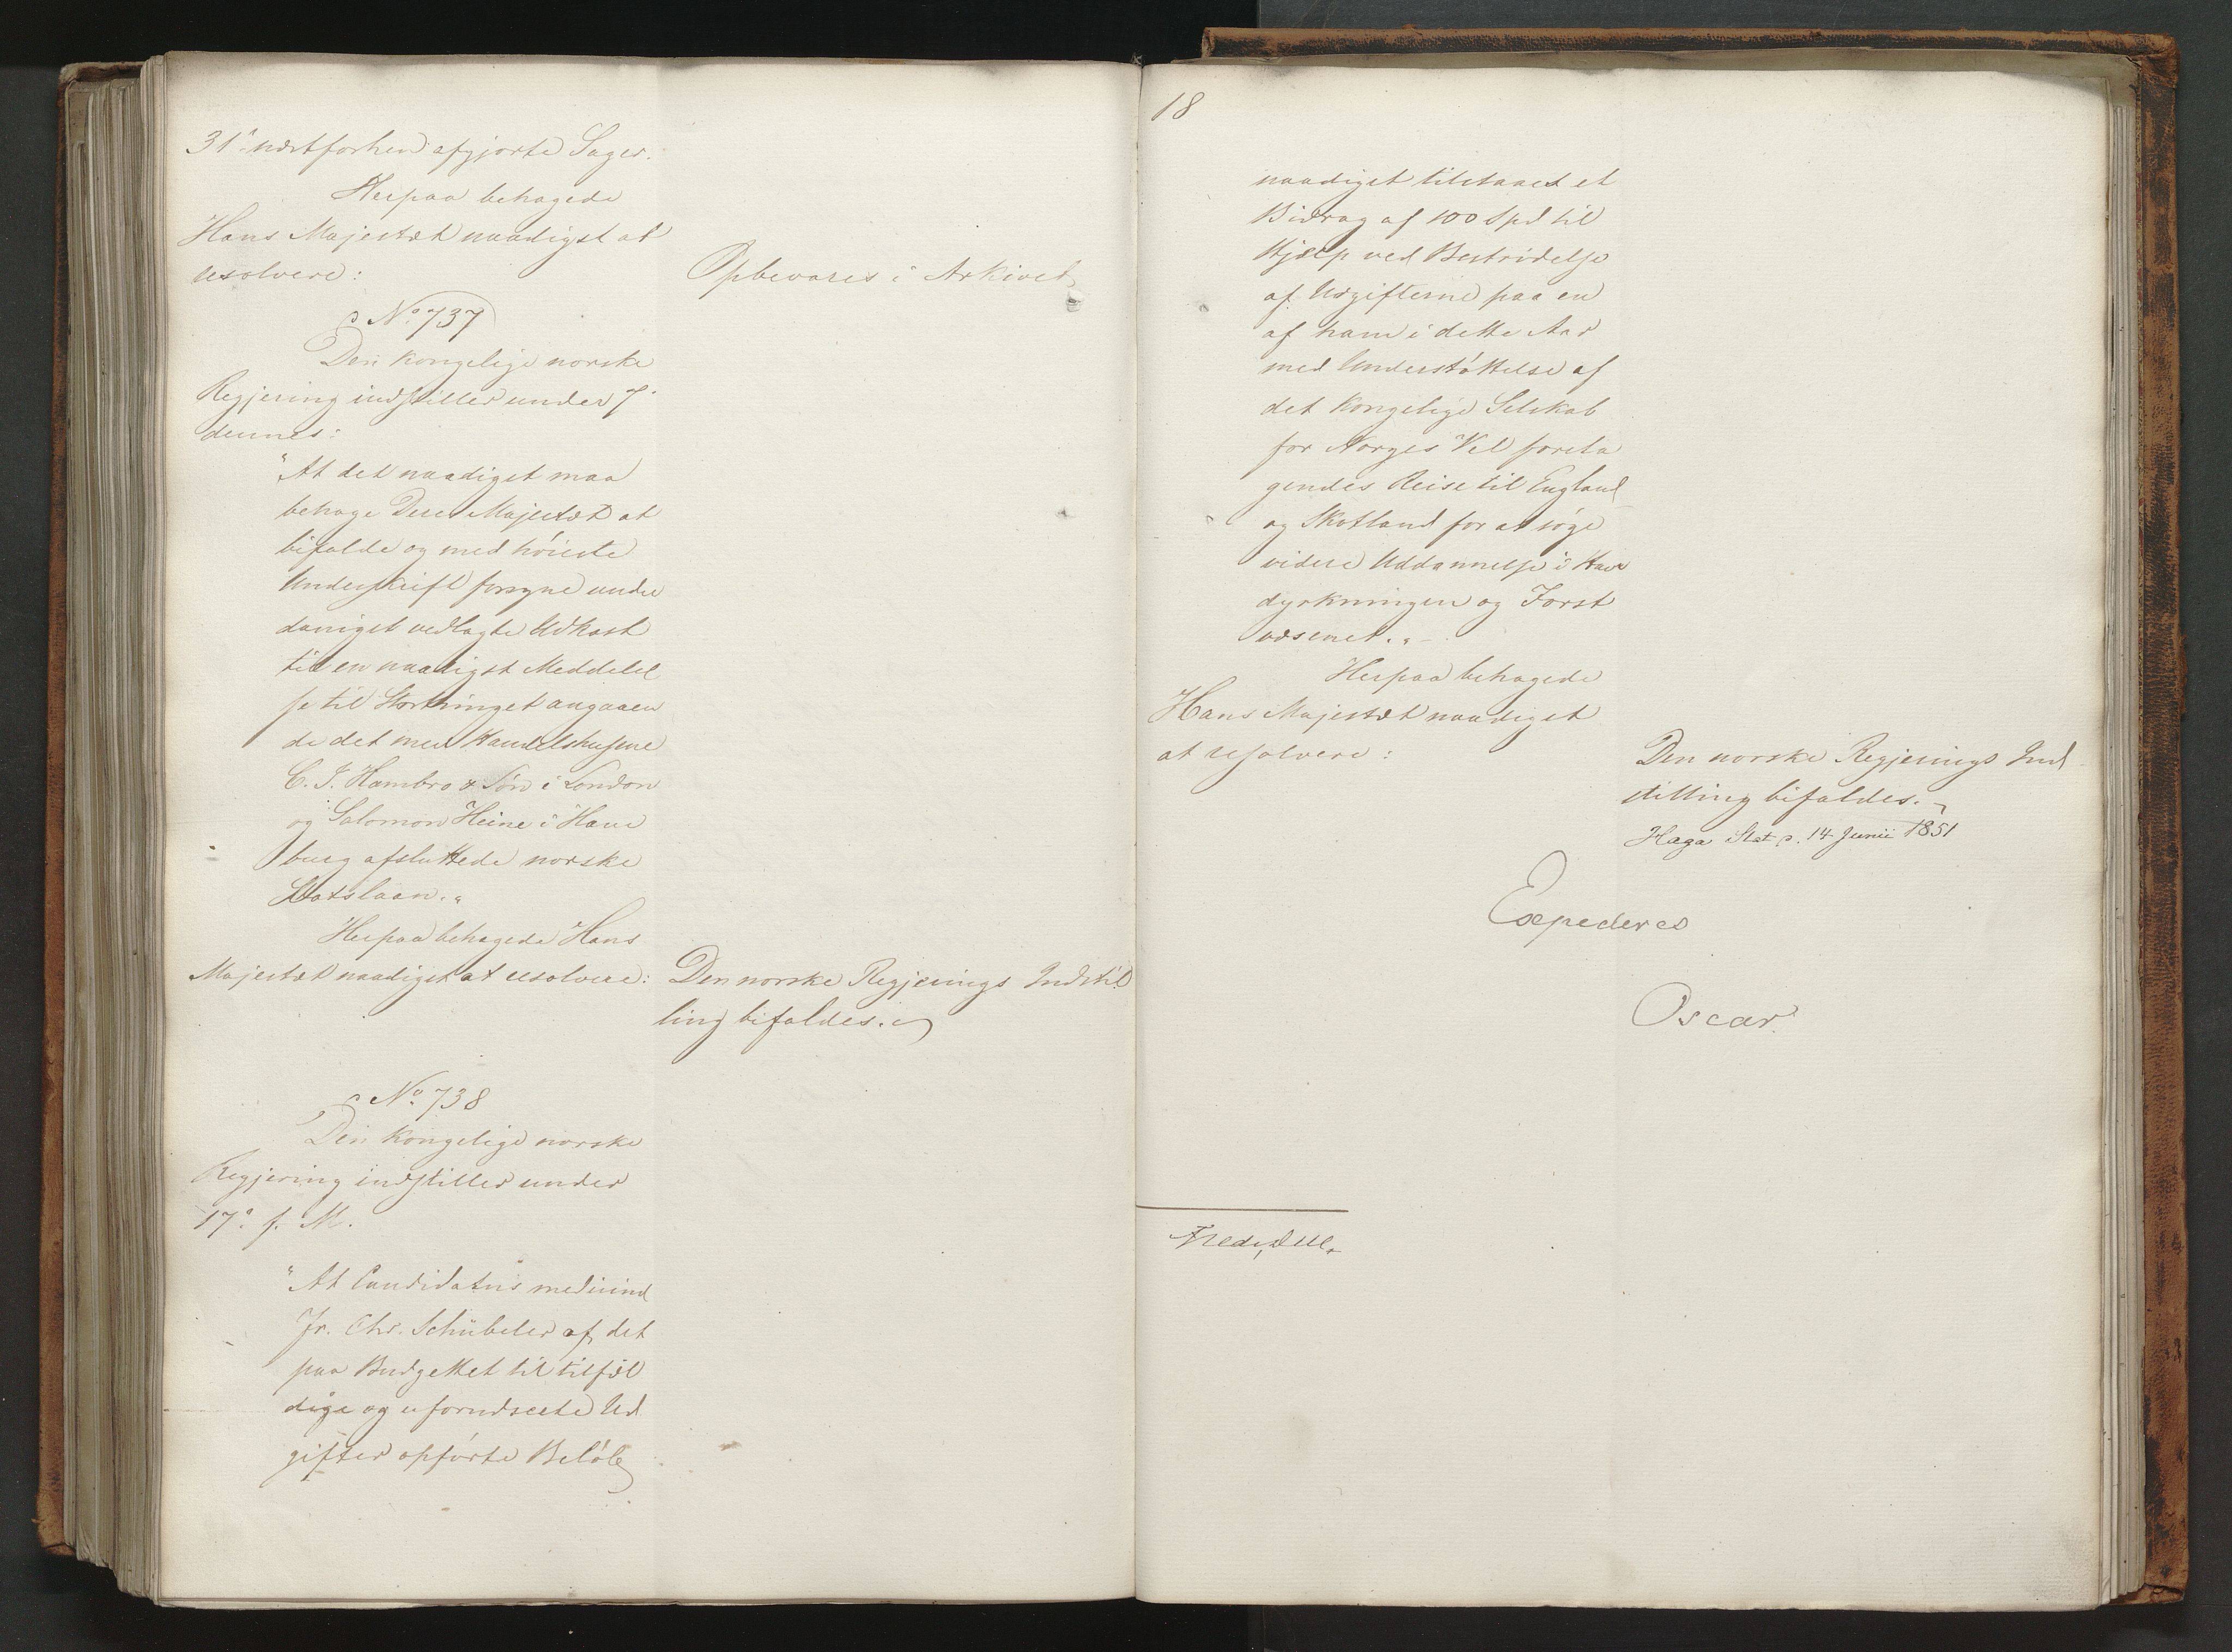 31' næstforhen afgjorte Sager.
Herpaa behagede
Hans Majestæt naadigst at
resolvere:
Opbevares i Arkivet
No 737
Den kongelige norske
Regjering indstiller under 7'
dennes:
"At det naadigst maa
behage Deres Majestæt at
bifalde og med høieste
Underskrift forsyne under
danigst vedlagte Udkast
til en naadigst Meddelel
se til Storthinget angaaen
de det med Handelshusene
C. J. Hambro & Søn i London
og Salomon Heine i Ham
burg afsluttede norske
Statslaan."
Herpaa behagede Hans
Majestæt naadigst at resolvere:
Den norske Regjerings Indstil
ling bifaldes.
No 738
Den kongelige norske
Regjering indstiller under
17' f. M.
"At Candidatus medicinæ
Fr. Chr. Schübeler af det
paa Budgettet til tilfæl
dige og uforudseete Ud
gifter opførte Beløb
18
naadigst tilstaaes et
Bidrag af 100 Spd til
Hjælp ved Bestridelse
af Udgifterne paa en
af ham i dette Aar
med Understøttelse af
det kongelige Selskab
for Norges Vel foreta
gendes Reise til England
og Skotland for at søge
videre Uddannelse i Have
dyrkningen og Forst
væsenet."
Herpaa behagede
Hans Majestæt naadigst
at resolvere:
Den norske Regjerings Ind
stilling bifaldes.
Haga Slot d. 14 Junii 1851
Expederes
Oscar